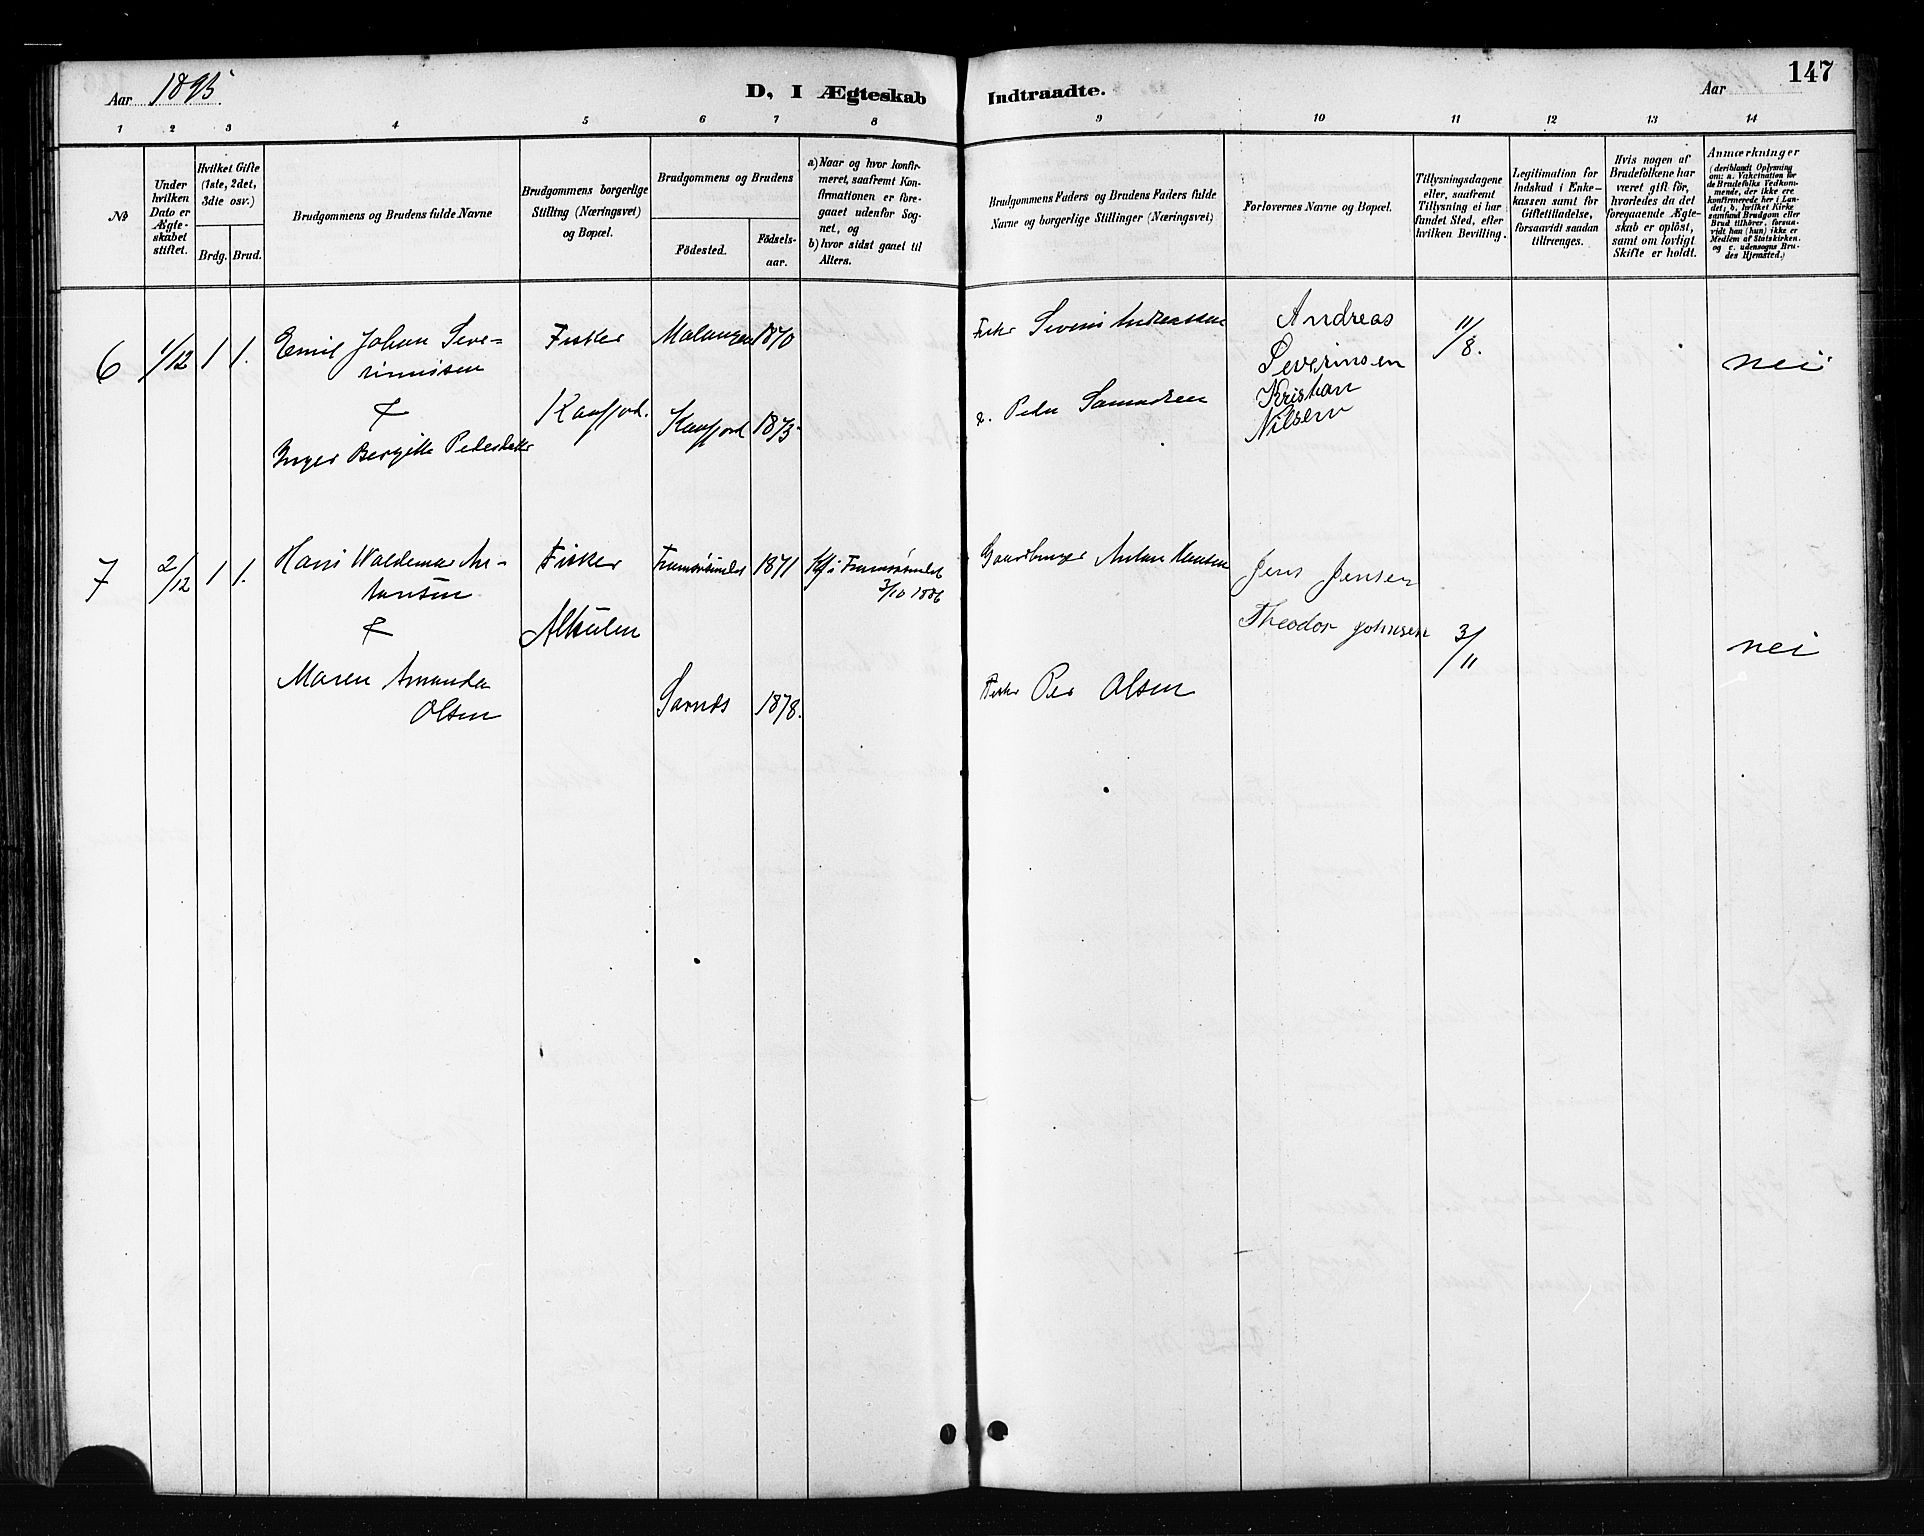 Aar 1895
D, I Ægteskab Indtraadte.
Aar
147
1 2 3 4 5 6 7 8 9 10 11 12 13 14
No
Under hvilken Dato er Ægteskabet stiftet.
Hvilket Gifte (1ste, 2det, 3die osv.)
Brdg. Brud.
Brudgommens og Brudens fulde Navne
Brudgommens borgerlige Stilling (Næringsvei) og Bopæl.
Brudgommens og Brudens
Födested.
Födselsaar.
a) Naar og hvor konfirmeret, saafremt Konfirmationen er foregaaet udenfor Sognet, og
b) hvor sidst gaaet til Alters.
Brudgommens Faders og Brudens Faders fulde Navne og borgerlige Stillinger (Næringsvei)
Forlovernes Navne og Bopæl.
Tillysningsdagene eller, saafremt Tillysning ei har fundet Sted, efter hvilken Bevilling.
Legitimation for Indskud i Enkekassen samt for Giftetilladelse, forsaavidt saadan tiltrænges.
Hvis nogen af Brudefolkene har været gift för, hvorledes da det foregaaende Ægteskab er oplöst, samt om lovligt Skifte er holdt.
Anmærkninger
(deriblandt Oplysning om: a. Vakcination for de Brudefolks Vedkommende, der ikke ere konfirmerede her i Landet; b. hvilket Kirkesamfund Brudgom eller Brud tilhörer, forsaavidt han (hun) ikke er Medlem af Statskirken. og c. udensogns Brudes Hjemsted.)
6 1/12 1 1. Emil Johan Seve-
rinnisen
&
Inger Bergitte Pedersdatter
Fisker
Kaafjord.
Malangen 1870
Kaafjord 1875
Fisker Severin Andreassen
Peder Samuelsen
Andreas
Severinsen
Kristian
Nilsen
11/8.
nei
7 2/12 1 1. Hans Waldemar An-
tonsen
&
Maren Amanda
Olsen
Fisker
Alteulen
Tromsösundet 1871
Sarnæs 1878.
Kf. i Tromsösundet
3/10 1886
Gaardbruger Anton Hansen
Fisker Per Olsen
Jens Jensen
Theodor Johnsen
3/11
nei